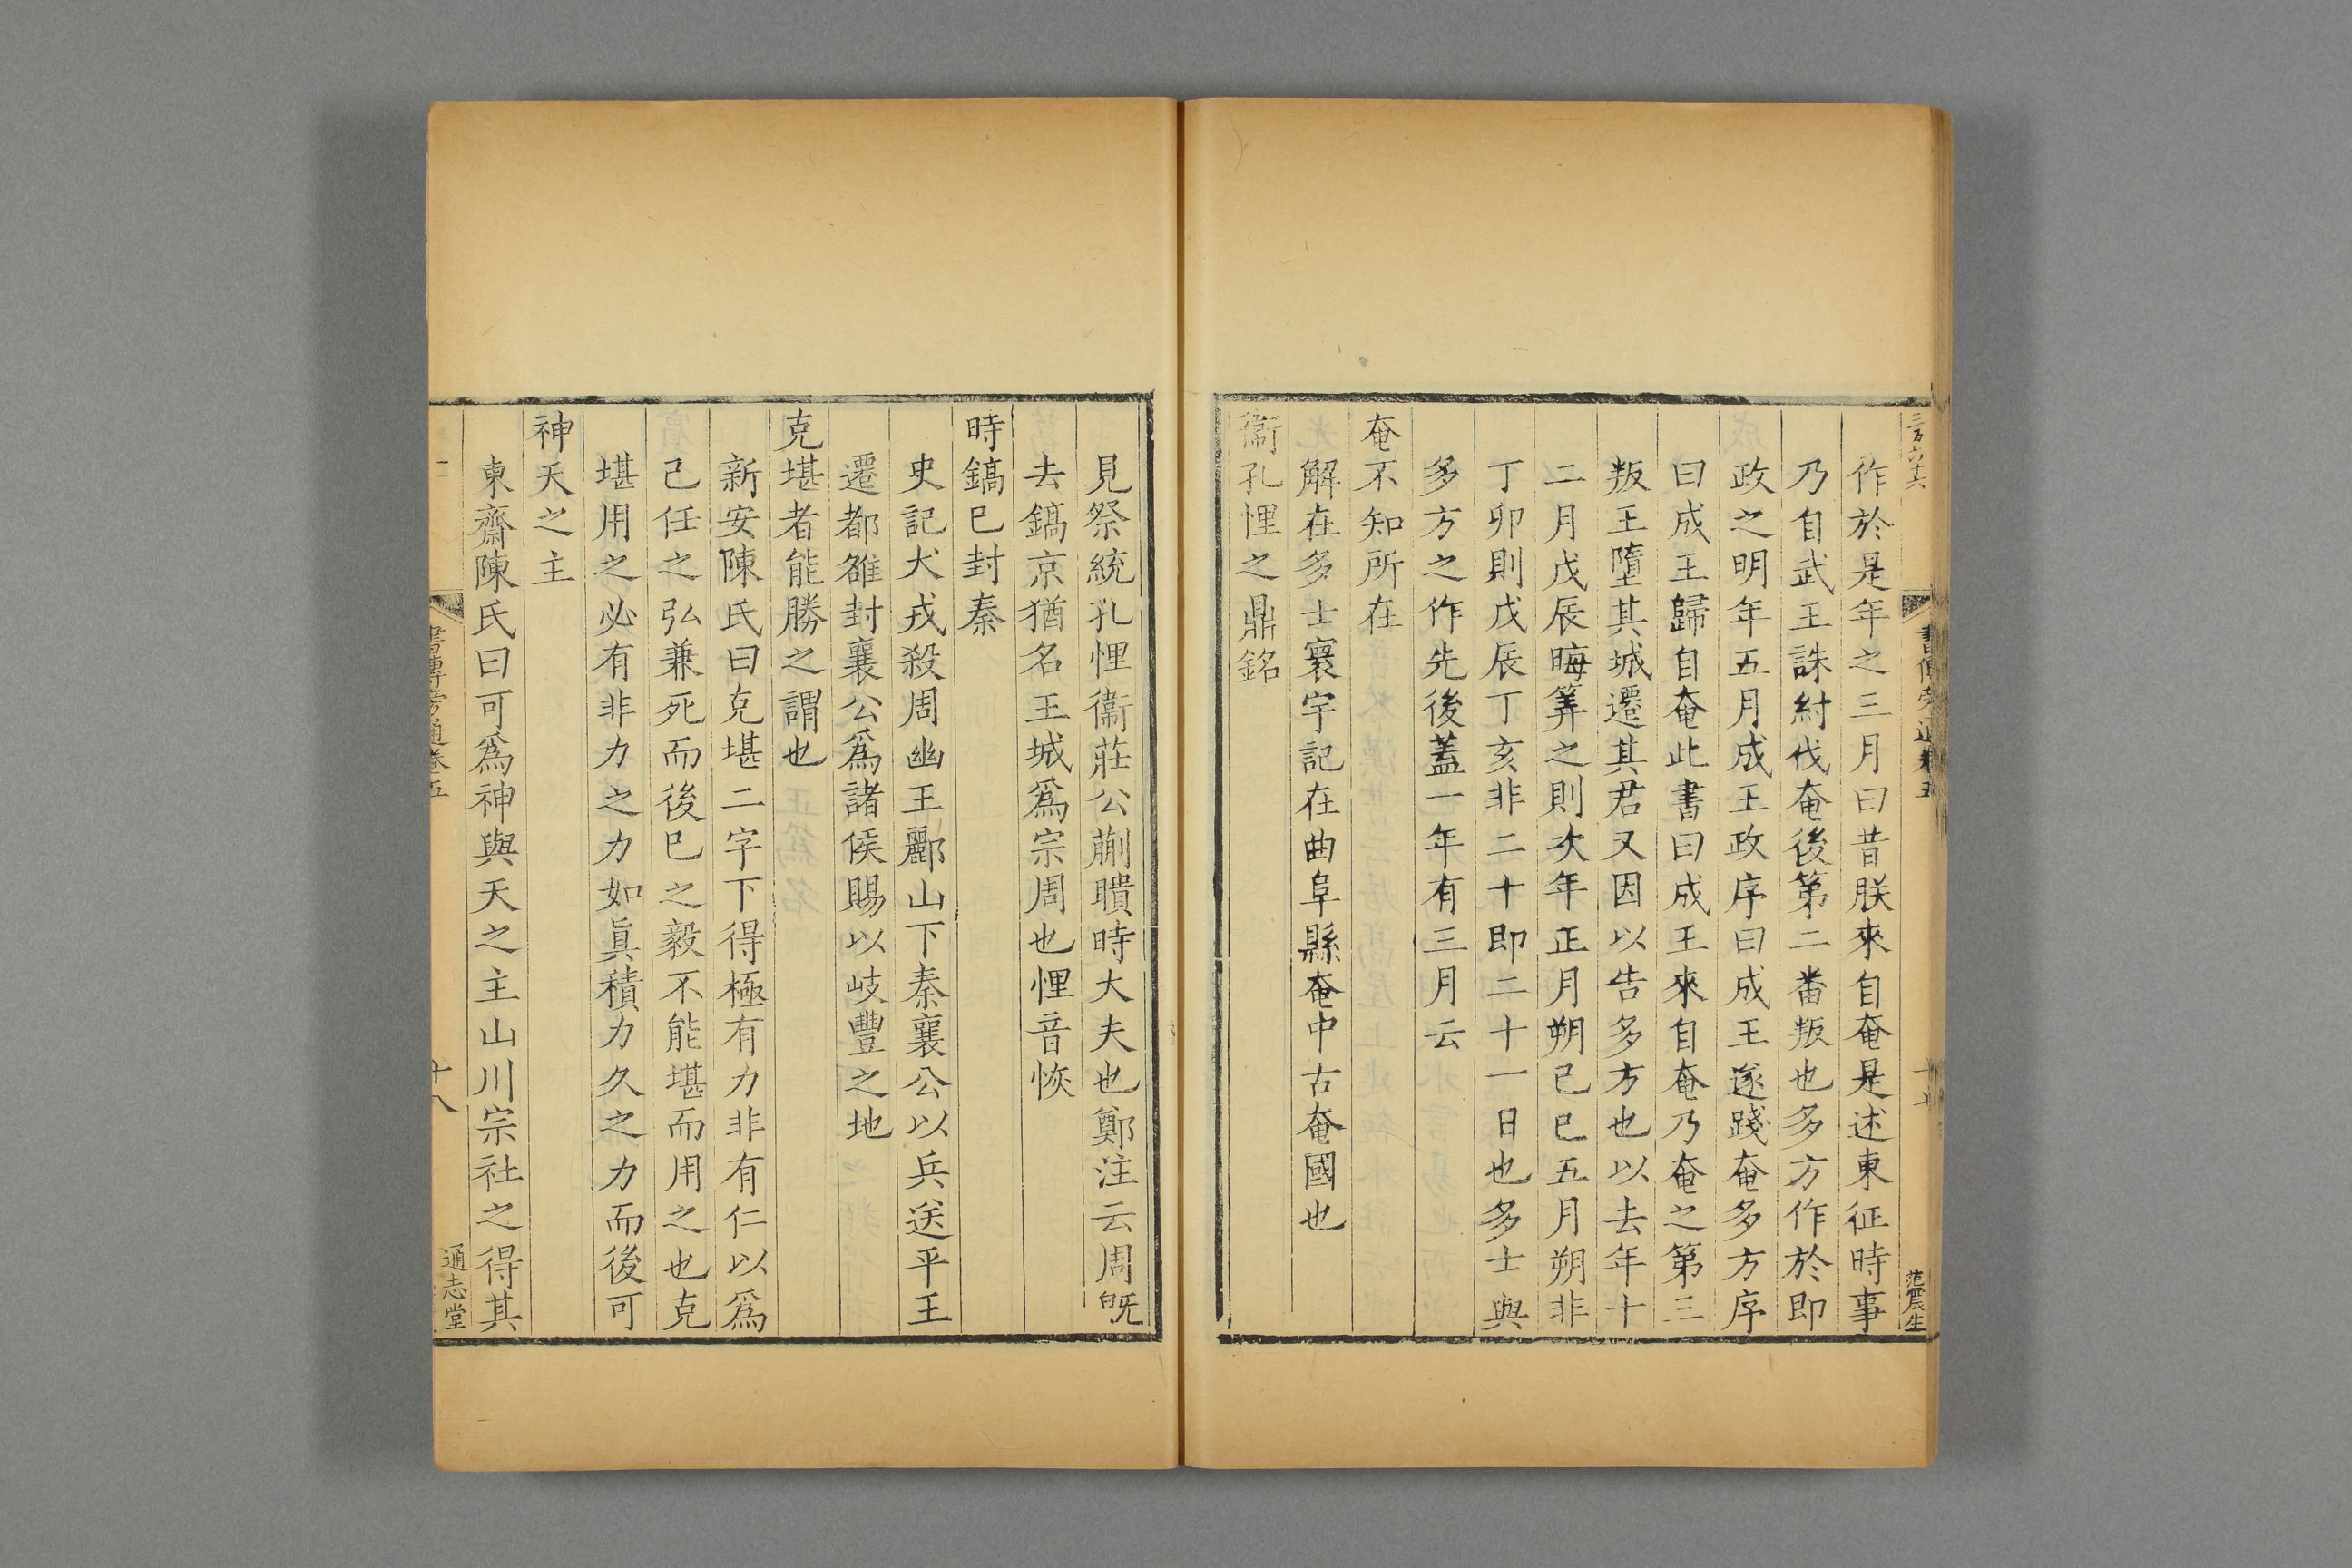 作於是年之三月曰昔朕來自奄是述東征時事
乃自武王誅紂伐奄後第二畨叛也多方作於即
政之明年五月成王政序曰成王遂踐奄多方序
曰成王歸自奄此書曰成王來自奄乃奄之第三
叛王墮其城遷其君又因以告多方也以去年十
二月戊辰晦筭之則次年正月朔己巳五月朔非
丁卯則戊辰丁亥非二十即二十一日也多士與
多方之作先後蓋一年有三月云
奄不知所在
解在多士寰宇記在曲阜縣奄中古奄國也
衞孔悝之鼎銘
范震生
見祭統孔悝衞莊公蒯聵時大夫也鄭注云周旣
去鎬京猶名王城爲宗周也悝音恢
時鎬已封秦
史記犬戎殺周幽王酈山下秦襄公以兵送平王
遷都雒封襄公爲諸侯賜以岐豐之地
克堪者能勝之謂也
新安陳氏曰克堪二字下得極有力非有仁以爲
己任之弘兼死而後已之毅不能堪而用之也克
堪用之必有非力之力如眞積力久之力而後可
神天之主
東齋陳氏曰可爲神與天之主山川宗社之得其
書傳旁通卷五
十八
通志堂